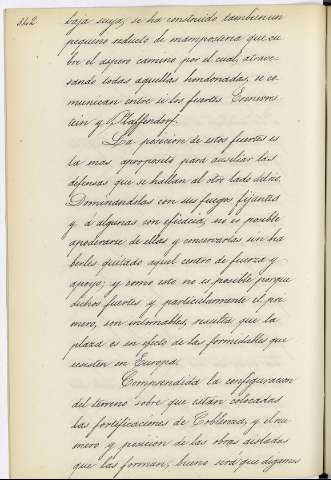 342
baja suya, se ha construido tambien un
pequeño reducto de mamposteria que cu-
bre el aspero camino por el cual, atrave-
sando todas aquellas hondonadas, se co-
munican entre si los fuertes
tein y Pfaffendorf.
La posicion de estos fuertes es
la mas aproposito para ausiliar las
defensas que se hallan al otro lado del rio.
Dominandolas con sus fuegos fijantes
y á algunas con eficacia, no es posible
apoderarse de ellas y conservarlas sin ha
berles quitado aquel centro de fuerza y
apoyo; y como esto no es posible porque
dichos fuertes y particularmente el pri
mero, son
 resulta que la
plaza es en efecto de las formidables que
ecsisten en Europa.
Comprendida la configuracion
del terreno sobre que estan colocadas
las fortificaciones de Coblenza, y el nu-
mero y posicion de las obras aisladas
que las forman; bueno será que digamos